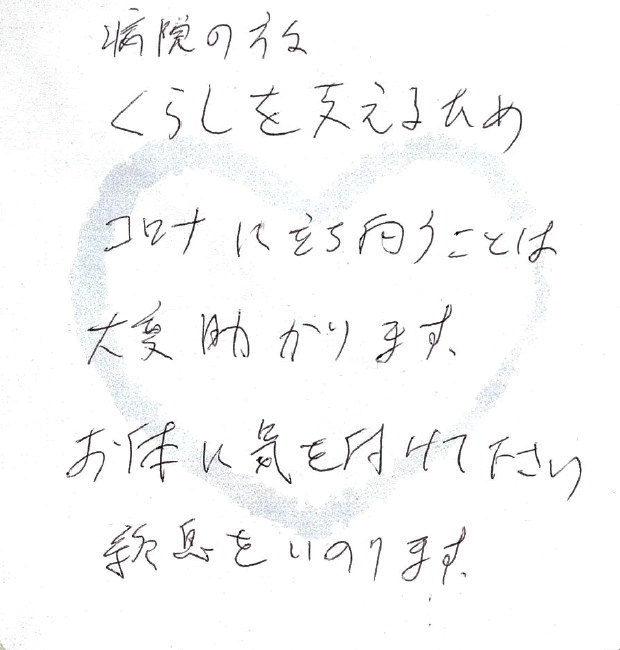 病院の方々
くらしを支えるため
コロナに立ち向うことは
大変助かります、
お体に気を付けて下さい
終息をいのります、